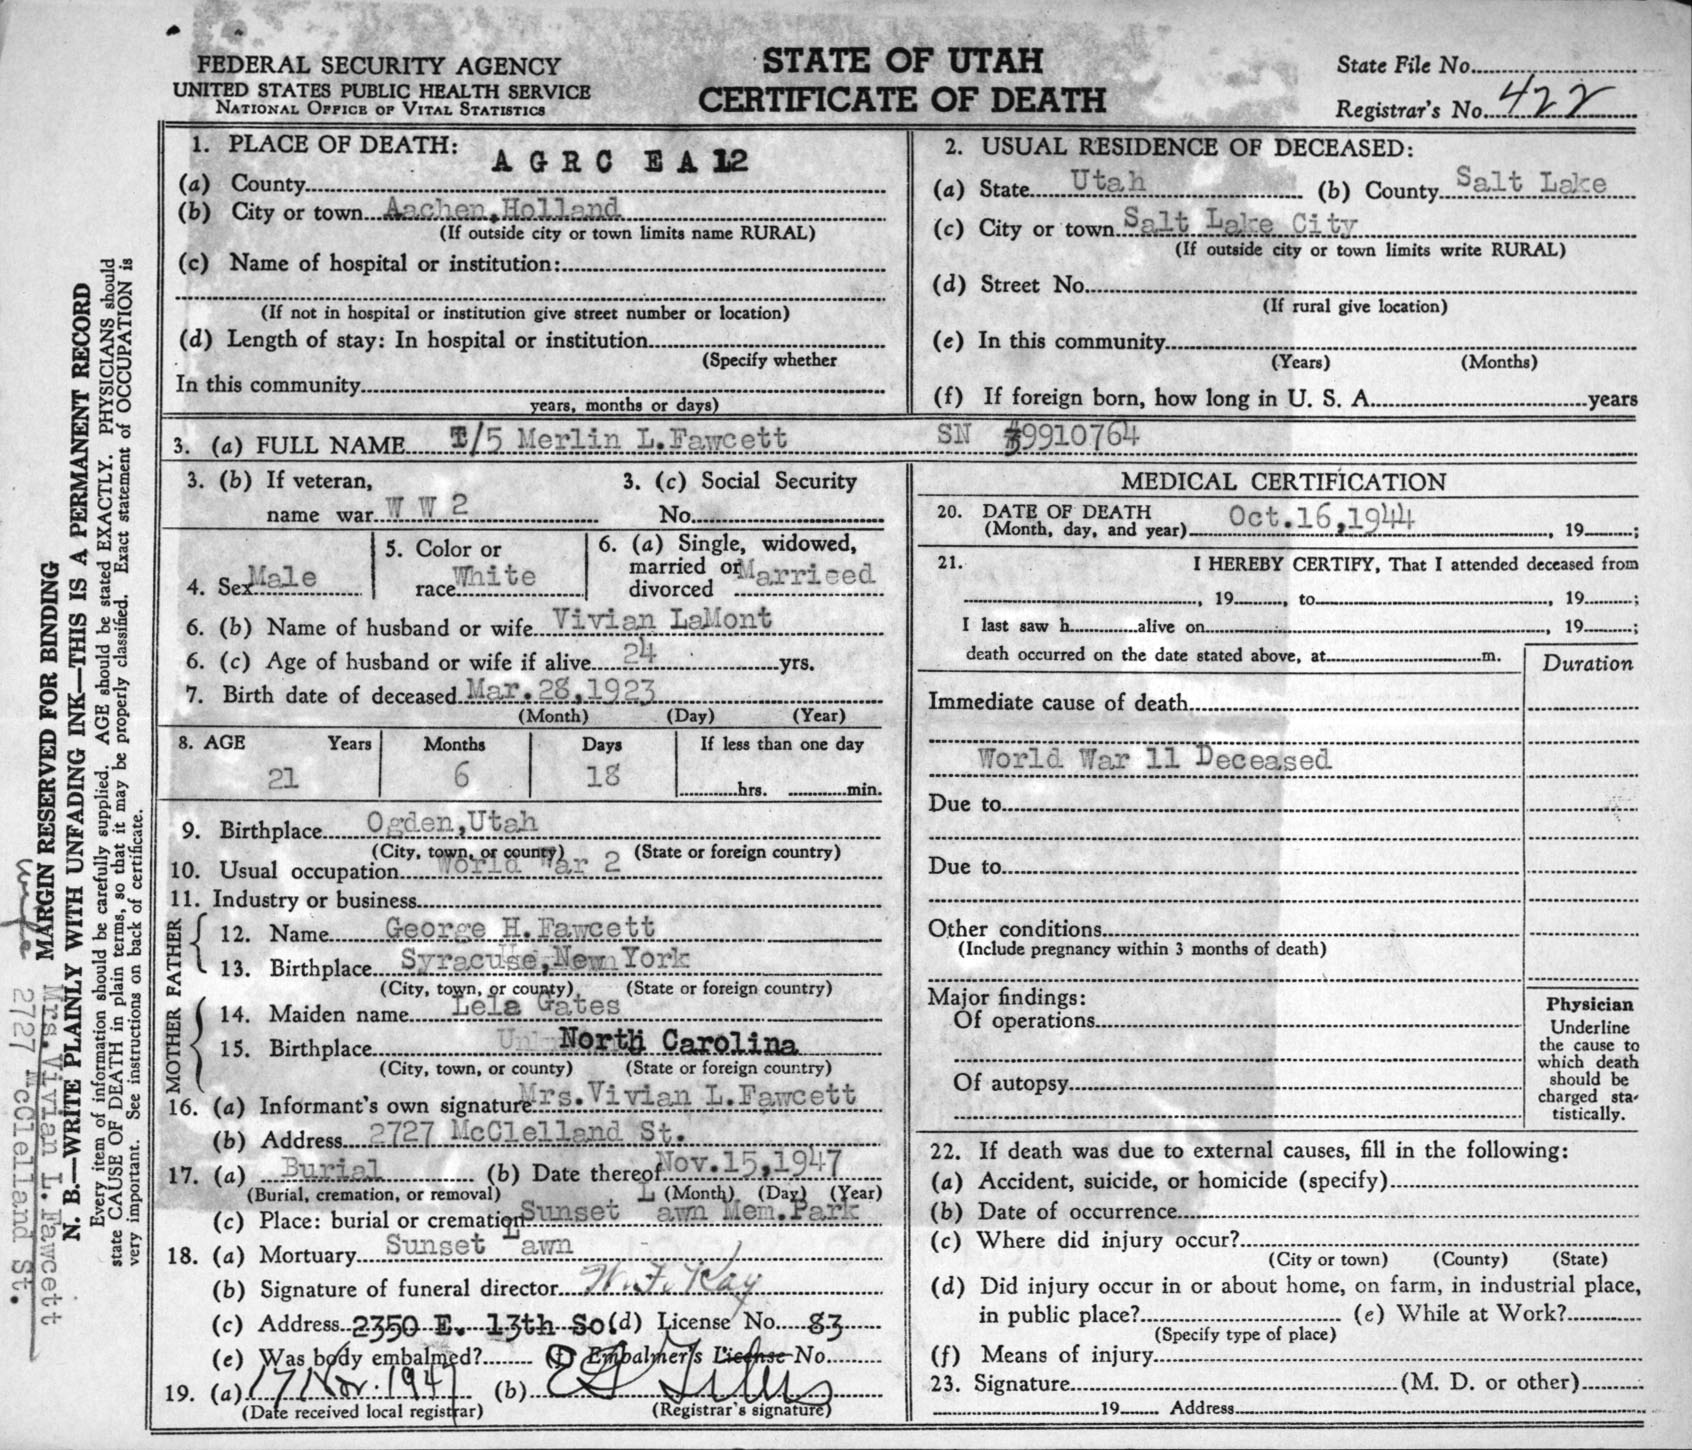 FEDERAL SECURITY AGENCY
UNITED STATES PUBLIC HEALTH SERVICE
NATIONAL OFFICE OF VITAL STATISTICS
STATE OF UTAH
CERTIFICATE OF DEATH
State File No.
Registrar's No. 422
1. PLACE OF DEATH: AGRC EA 12
(a) County
(b) City or town Aachen,Holland
(If outside city or town limits name RURAL)
(c) Name of hospital or institution:
(If not in hospital or institution give street number or location)
(d) Length of stay: In hospital or institution
(Specify whether
In this community
years, months or days)
2. USUAL RESIDENCE OF DECEASED:
(a) State Utah (b) County Salt Lake
(c) City or town Salt Lake City
(If outside city or town limits write RURAL)
(d) Street No.
(If rural give location)
(e) In this community
(Years) (Months)
(f) If foreign born, how long in U. S. A. years
3. (a) FULL NAME T/5 Merlin L.Fawcett SN 39910764
3. (b) If veteran, name war W W 2
3. (c) Social Security No.
4. Sex Male
5. Color or race White
6. (a) Single, widowed, married or divorced Marriced
6. (b) Name of husband or wife Vivian LaMont
6. (c) Age of husband or wife if alive 24 yrs.
7. Birth date of deceased Mar.28,1923
(Month) (Day) (Year)
8. AGE Years Months Days If less than one day
21 6 18 hrs. min.
9. Birthplace Ogden,Utah
(City, town, or county) (State or foreign country)
10. Usual occupation World War 2
11. Industry or business
FATHER
12. Name George H.Fawcett
13. Birthplace Syracuse,New York
(City, town, or county) (State or foreign country)
MOTHER
14. Maiden name Lela Gates
15. Birthplace North Carolina
(City, town, or county) (State or foreign country)
16. (a) Informant's own signature Mrs.Vivian L.Fawcett
(b) Address 2727 McClelland St.
17. (a) Burial (b) Date thereof Nov.15,1947
(Burial, cremation, or removal) (Month) (Day) (Year)
(c) Place: burial or cremation Sunset Lawn Mem.Park
18. (a) Mortuary Sunset Lawn
(b) Signature of funeral director W. F. Kay
(c) Address 2350 E. 13th So (d) License No. 83
(e) Was body embalmed? (f) Embalmer's License No.
19. (a) 17 Nov. 1947 (b)
(Date received local registrar) (Registrar's signature)
MEDICAL CERTIFICATION
20. DATE OF DEATH Oct.16,1944
(Month, day, and year) , 19 ;
21. I HEREBY CERTIFY, That I attended deceased from
, 19 , to , 19 ;
I last saw h alive on , 19 ;
death occurred on the date stated above, at m.
Duration
Immediate cause of death
World War 11 Deceased
Due to
Due to
Other conditions
(Include pregnancy within 3 months of death)
Major findings:
Of operations
Of autopsy
Physician
Underline
the cause to
which death
should be
charged sta-
tistically.
22. If death was due to external causes, fill in the following:
(a) Accident, suicide, or homicide (specify)
(b) Date of occurrence
(c) Where did injury occur?
(City or town) (County) (State)
(d) Did injury occur in or about home, on farm, in industrial place,
in public place? (e) While at Work?
(Specify type of place)
(f) Means of injury
23. Signature (M. D. or other)
19 Address
MARGIN RESERVED FOR BINDING
N. B.—WRITE PLAINLY WITH UNFADING INK—THIS IS A PERMANENT RECORD
Every item of information should be carefully supplied. AGE should be stated EXACTLY. PHYSICIANS should
state CAUSE OF DEATH in plain terms, so that it may be properly classified. Exact statement of OCCUPATION is
very important. See instructions on back of certificate.
wife
Mrs.Vivian L.Fawcett
2727 McClelland St.